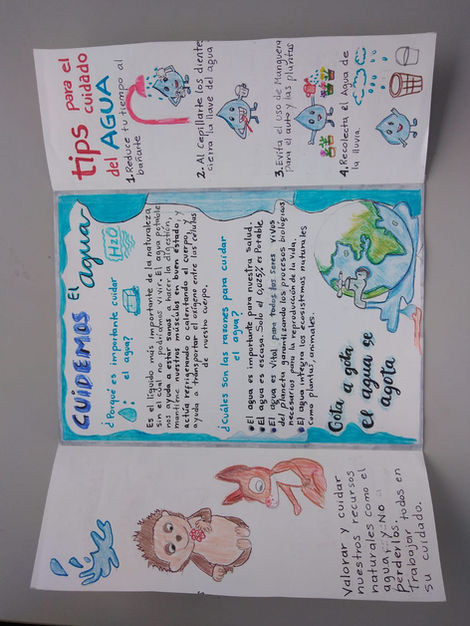 CUIDEMOS El agua
¿Porqué es importante cuidar
el agua?
H2O
Es el líquido más importante de la naturaleza
sin el cual no podríamos vivir. El agua potable
nos ayuda a estar sanos, a hacer la digestión,
mantiene nuestros músculos en buen estado, y
actúa refrigerando o calentando el cuerpo, y
ayuda a transportar el oxígeno entre las células
de nuestro cuerpo.
¿Cuáles son las razones para cuidar
el agua?
El agua es importante para nuestra salud.
El agua es escasa. Solo el 0,025% es Potable
El agua es vital para todos los seres vivos
del planeta garantizando los procesos biológicos
necesarios para la reproducción de la vida.
El agua integra los ecosistemas naturales
como plantas, animales.
Gota a gota
el agua se
agota
tips para el
cuidado
del AGUA
1. Reduce tu tiempo al
bañarte
2. Al Cepillarte los dientes
cierra la llave del agua
3. Evita el uso de Manguera
para el auto y las plantas
4. Recolecta el Agua de
la lluvia.
Valorar y cuidar
nuestros recursos
naturales como el
agua, y NO
perderlos.
Trabajar todos en
su cuidado.